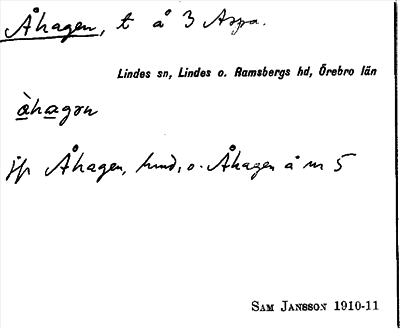 Åhagen, t å 3 Aspa.
Lindes sn, Lindes o. Ramsbergs hd, Örebro län
àhagən
jfr Åhagen, hmd, o. Åhagen å nr 5
SAM JANSSON 1910-11